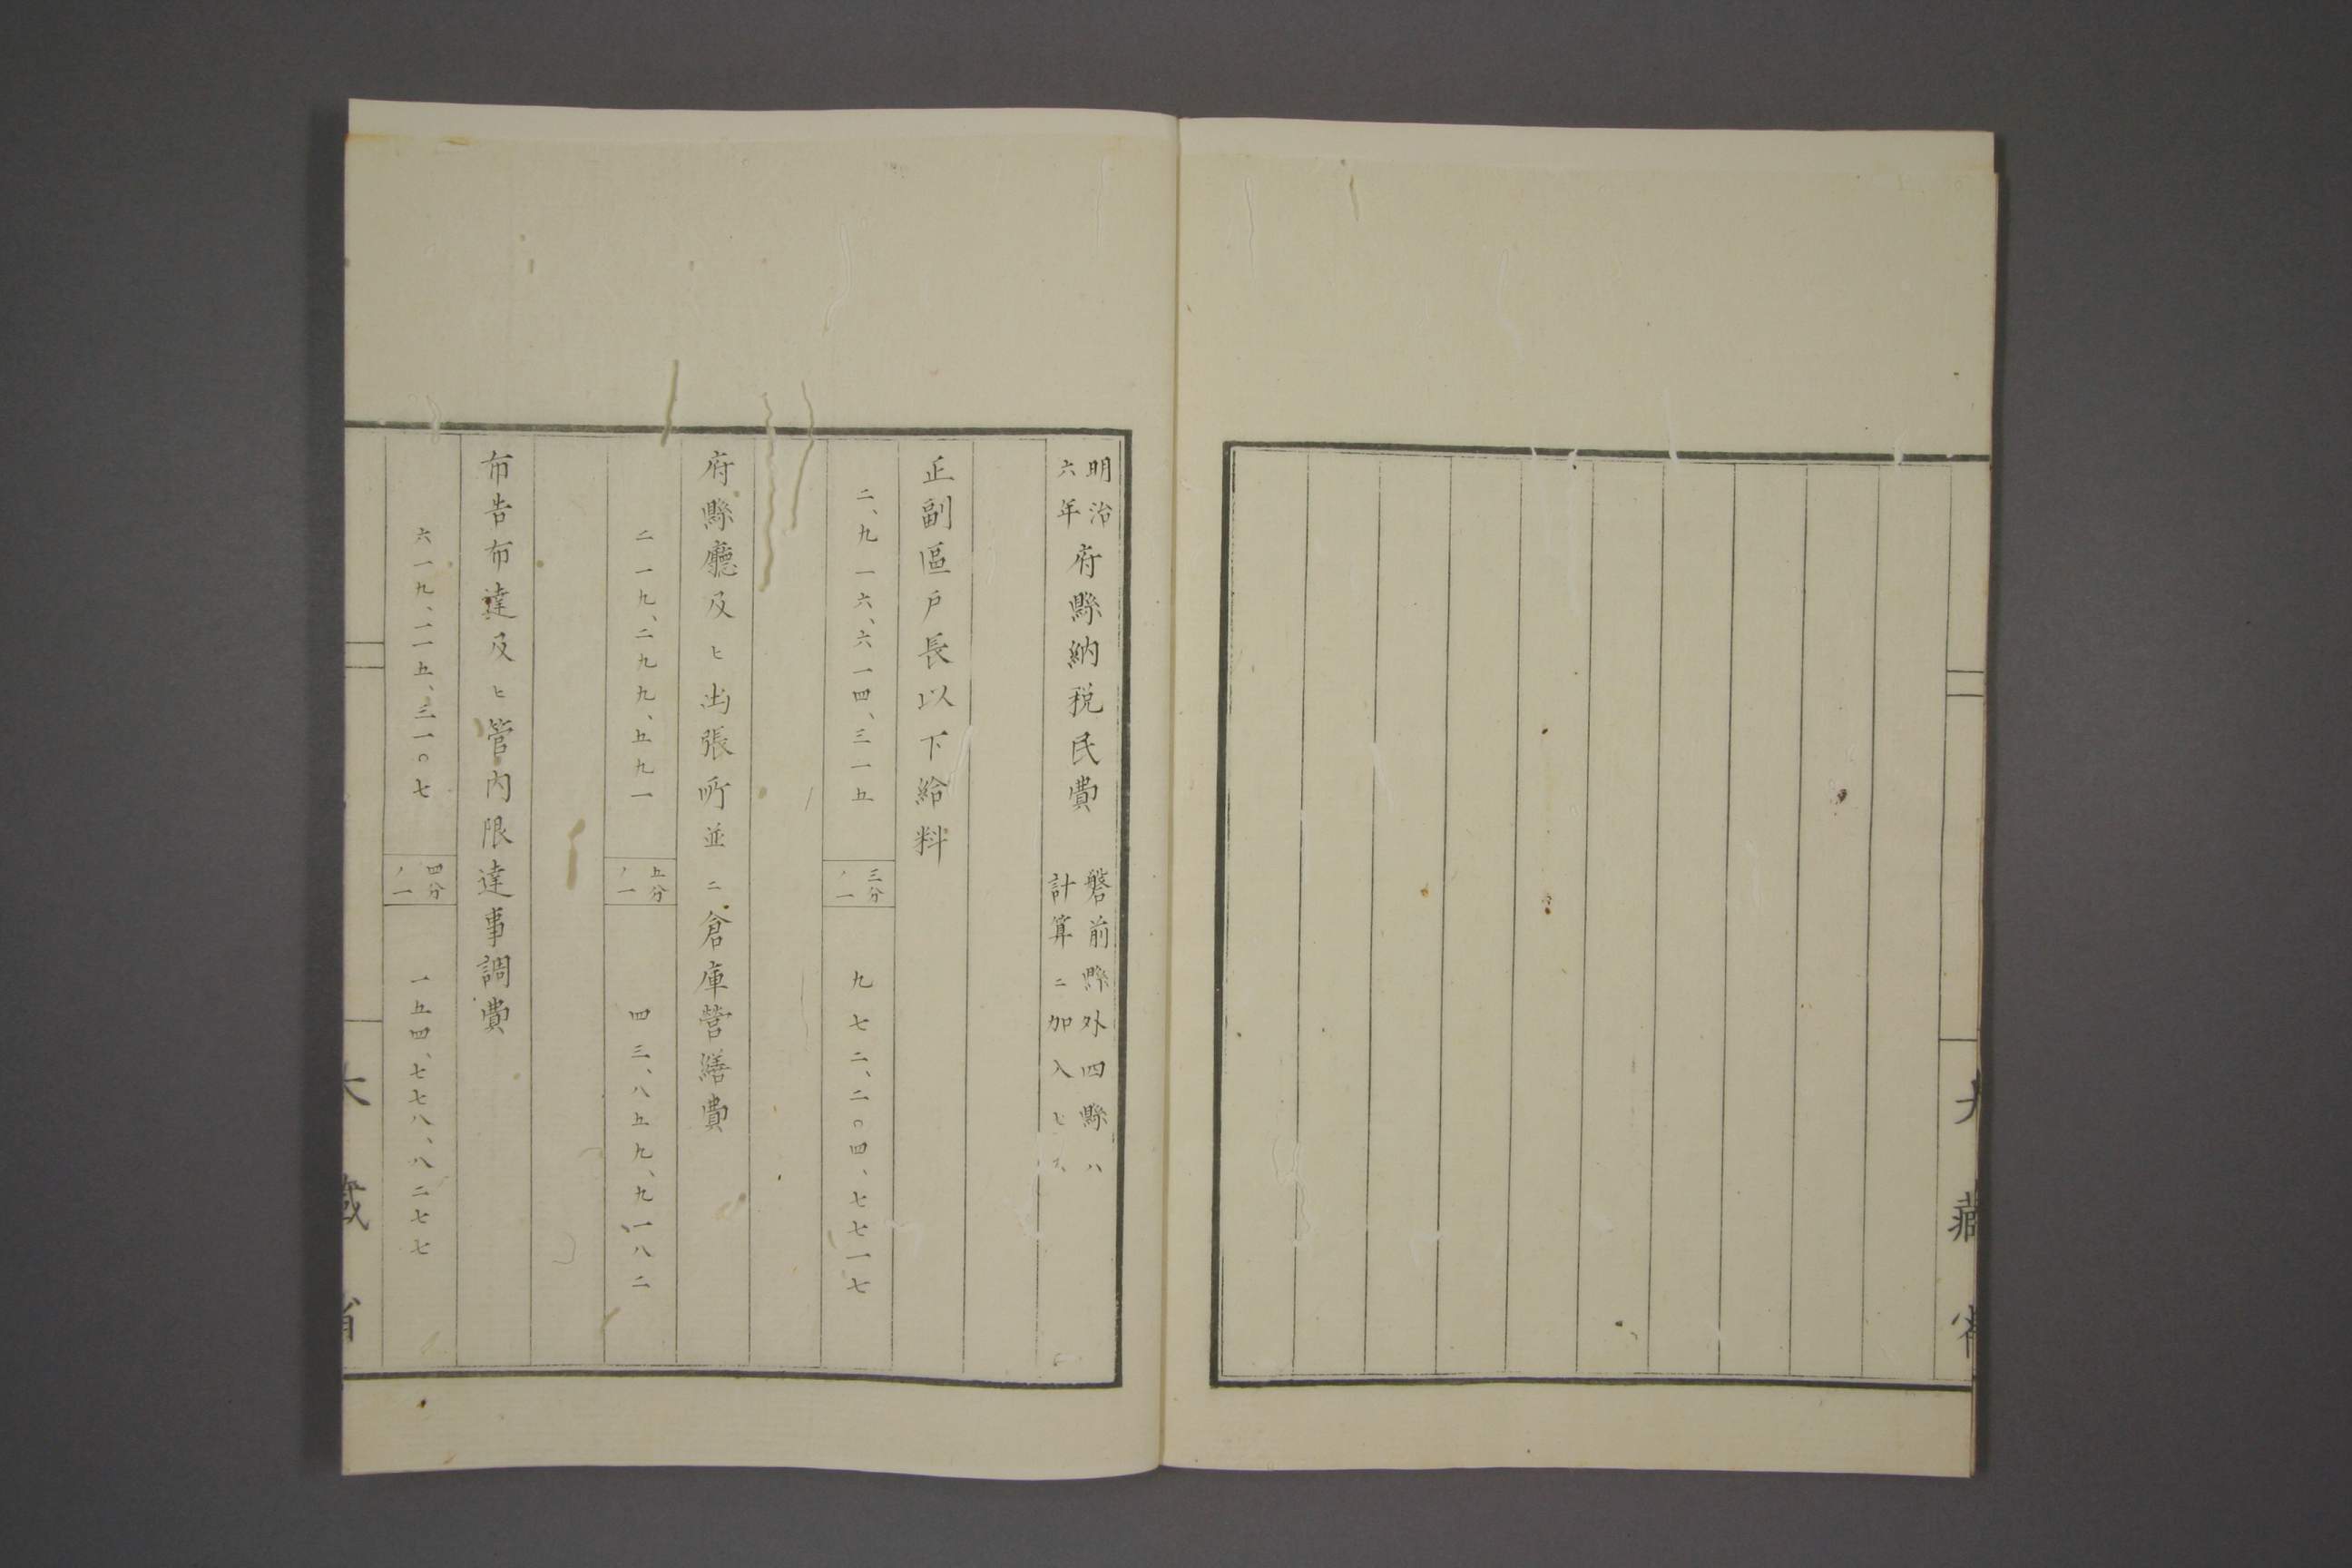 大藏省
明治六年府縣納税民費 磐前縣外四縣ハ計算ニ加入セス
正副區戸長以下給料
二、九一六、六一四、三一五 三分ノ一 九七二、二〇四、七七一七
府縣廳及ヒ出張所並ニ倉庫營繕費
二一九、二九九、五九一 五分ノ一 四三、八五九、九一八二
布告布達及ヒ管内限達事調費
六一九、一一五、三一〇七 四分ノ一 一五四、七七八、八二七七
大藏省